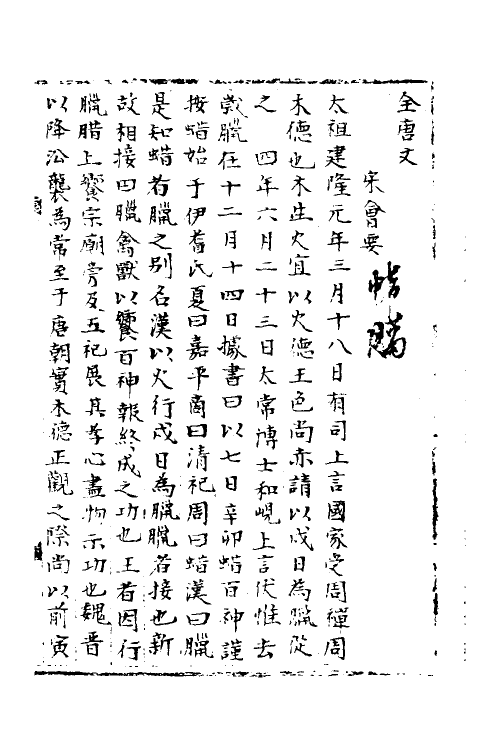 全唐文
宋會要
蜡臘
太祖建隆元年三月十八日有司上言國家受周禪周
木德也木生火宜以火德王色尚赤請以戌日為臘從
之　四年六月二十三日太常博士和峴上言伏惟去
歲臘在十二月十四日據書曰以七日辛卯蜡百神謹
按蜡始于伊耆氏夏曰嘉平商曰清祀周曰蜡漢曰臘
是知蜡者臘之別名漢以火行戌日為臘臘者接也新
故相接田臘禽獸以饗百神報終成之功也王者因行
臘腊上饗宗廟旁及五祀展其孝心盡物示功也魏晉
以降沿襲為常至于唐朝實木德正觀之際尚以前寅